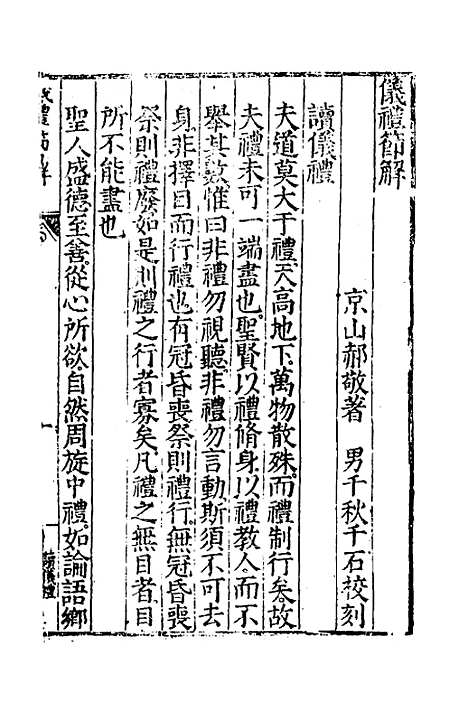 儀禮節解
京山郝敬著　男千秋千石校刻
讀儀禮
夫道莫大于禮天高地下萬物散殊而禮制行矣故
夫禮未可一端盡也聖賢以禮脩身以禮教人而不
舉其數惟曰非禮勿視聽非禮勿言動斯須不可去
身非擇目而行禮也有冠昏喪祭則禮行無冠昏喪
祭則禮廢如是則禮之行者寡矣凡禮之無目者目
所不能盡也
聖人盛德至善從心所欲自然周旋中禮如論語鄉
儀禮節解
一
讀儀禮